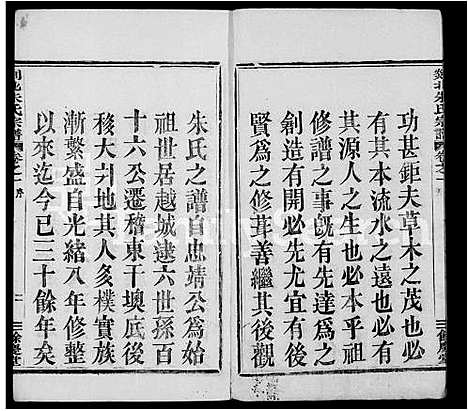 剡北朱氏宗譜 卷之一 序
功甚鉅夫草木之茂也必
有其本流水之遠也必有
其源人之生也必本乎祖
修譜之事旣有先達爲之
創造有開必先尤宜有後
賢爲之修葺善繼其後觀
朱氏之譜自忠靖公爲始
祖世居越城逮六世孫百
十六公遷稽東干墺底後
移大廾地其人多樸實族
漸繁盛自光緒八年修整
以來迄今已三十餘年矣
剡北朱氏宗譜 卷之一 序 一